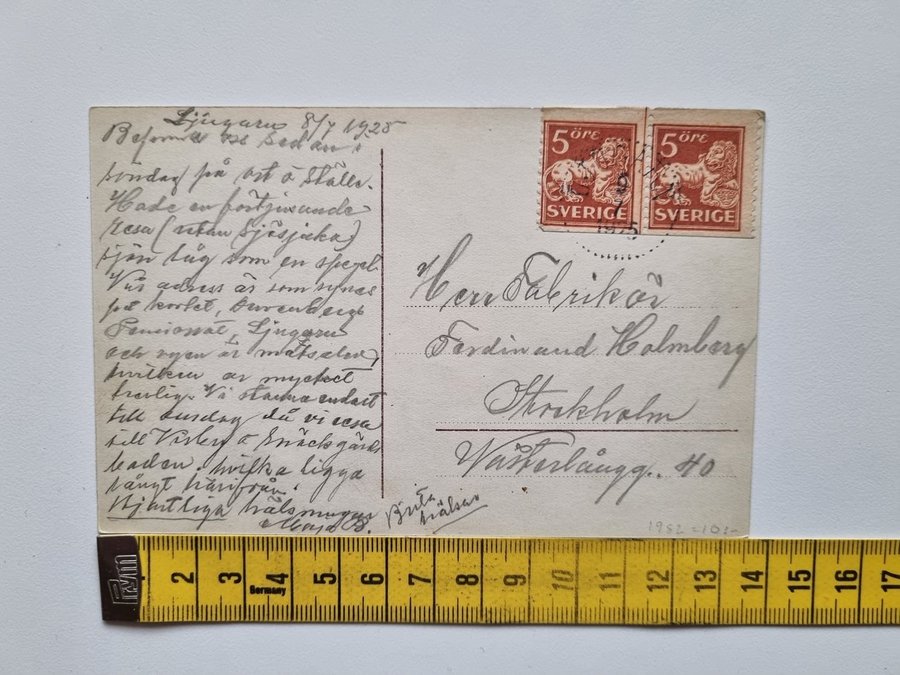 Ljugarn 8/7 1925
Befinna oss sedan i
söndag på ort o ställe.
Hade en förtjusande
resa (utan sjösjuka)
sjön låg som en spegel.
Vår adress är som synes
på kortet, Pensionat, Ljugarn
och vyen är matsalen,
hvilken är mycket
trevlig. Vi stanna endast
till tisdag då vi resa
till Visby o Snäckgärds
baden, hvilka ligga
långt härifrån.
Hjärtliga hälsningar
Maja B.
Brita
hälsar
5 ÖRE
SVERIGE
5 ÖRE
SVERIGE
9
7
1925
Herr Fabrikör
Ferdinand Holmberg
Stockholm
Västerlångg. 40
1982 = 10:-
Prym
2 3 4 5 6 7 8 9 10 11 12 13 14 15 16 17
Germany